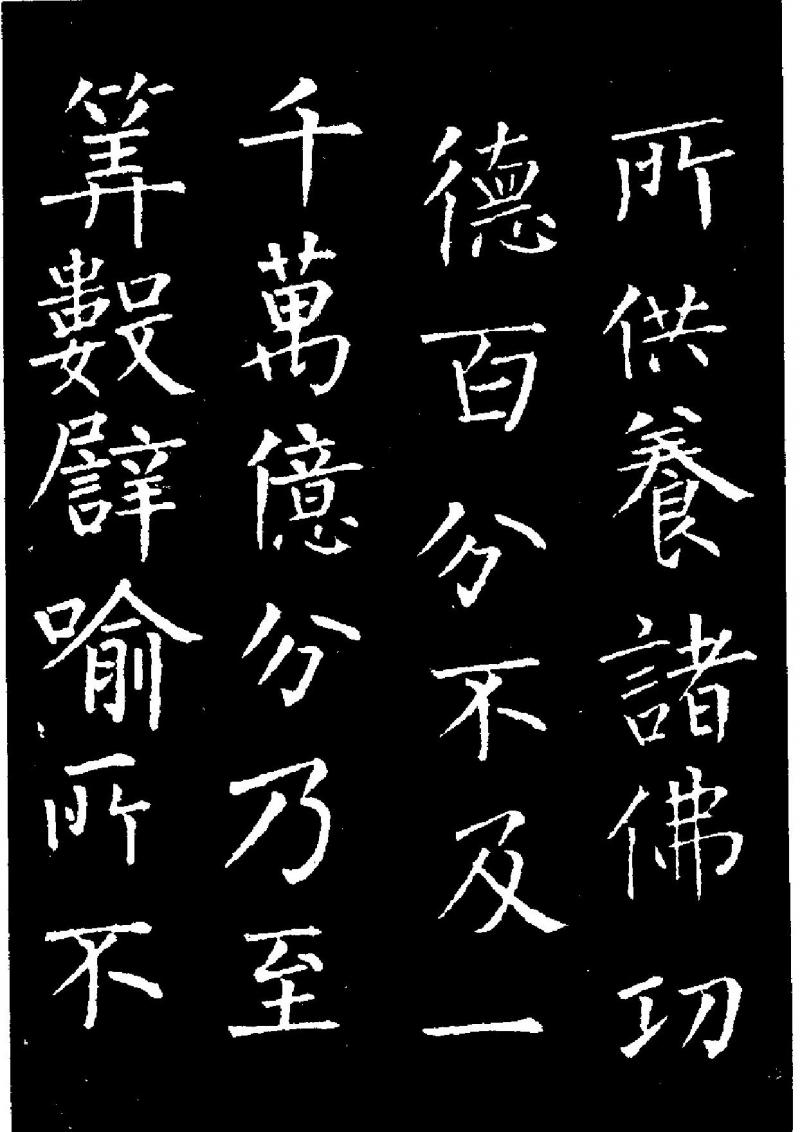 所供養諸佛功
德百分不及一
千萬億分乃至
筭數譬喻所不